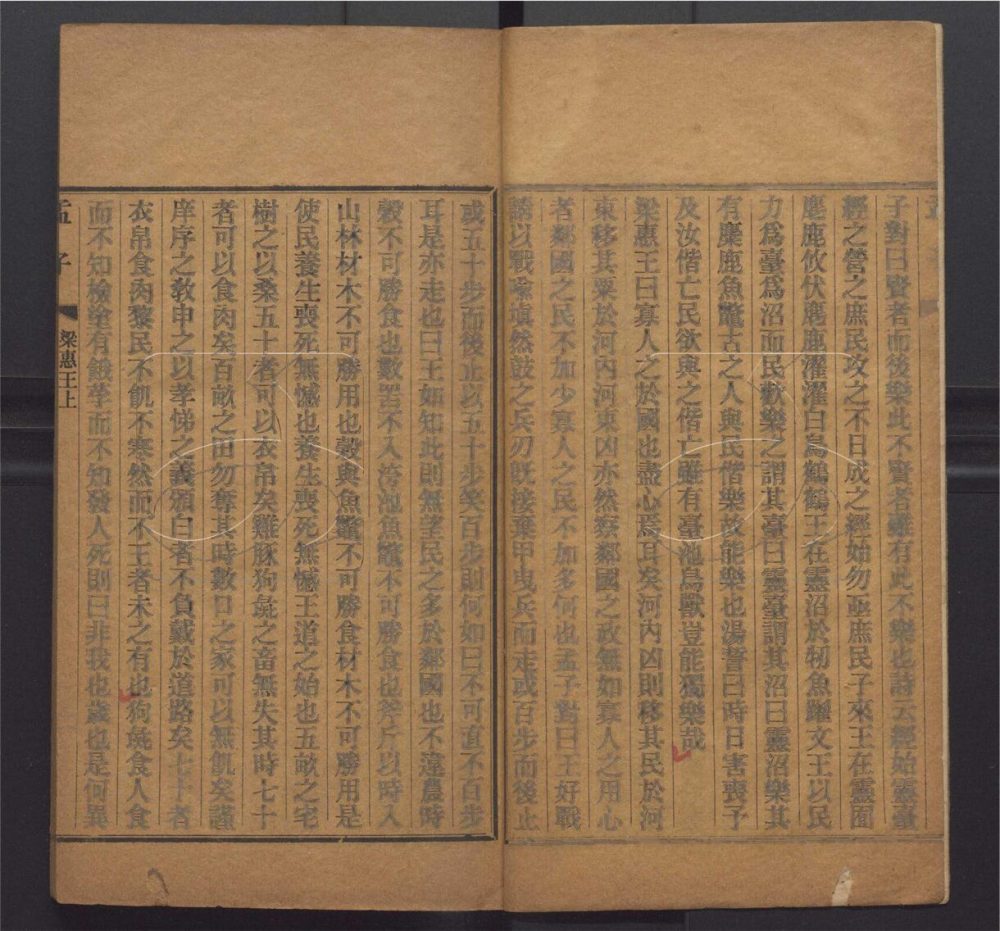 子對曰賢者而後樂此不賢者雖有此不樂也詩云經始靈臺
經之營之庶民攻之不日成之經始勿亟庶民子來王在靈囿
麀鹿攸伏麀鹿濯濯白鳥鶴鶴王在靈沼於牣魚躍文王以民
力爲臺爲沼而民歡樂之謂其臺曰靈臺謂其沼曰靈沼樂其
有麋鹿魚鼈古之人與民偕樂故能樂也湯誓曰時日害喪予
及汝偕亡民欲與之偕亡雖有臺池鳥獸豈能獨樂哉
梁惠王曰寡人之於國也盡心焉耳矣河內凶則移其民於河
東移其粟於河內河東凶亦然察鄰國之政無如寡人之用心
者鄰國之民不加少寡人之民不加多何也孟子對曰王好戰
請以戰喻塡然鼓之兵刃旣接棄甲曳兵而走或百步而後止
或五十步而後止以五十步笑百步則何如曰不可直不百步
耳是亦走也曰王如知此則無望民之多於鄰國也不違農時
穀不可勝食也數罟不入洿池魚鼈不可勝食也斧斤以時入
山林材木不可勝用也穀與魚鼈不可勝食材木不可勝用是
使民養生喪死無憾也養生喪死無憾王道之始也五畝之宅
樹之以桑五十者可以衣帛矣雞豚狗彘之畜無失其時七十
者可以食肉矣百畝之田勿奪其時數口之家可以無飢矣謹
庠序之敎申之以孝悌之義頒白者不負戴於道路矣七十者
衣帛食肉黎民不飢不寒然而不王者未之有也狗彘食人食
而不知檢塗有餓莩而不知發人死則曰非我也歲也是何異
孟子 梁惠王上